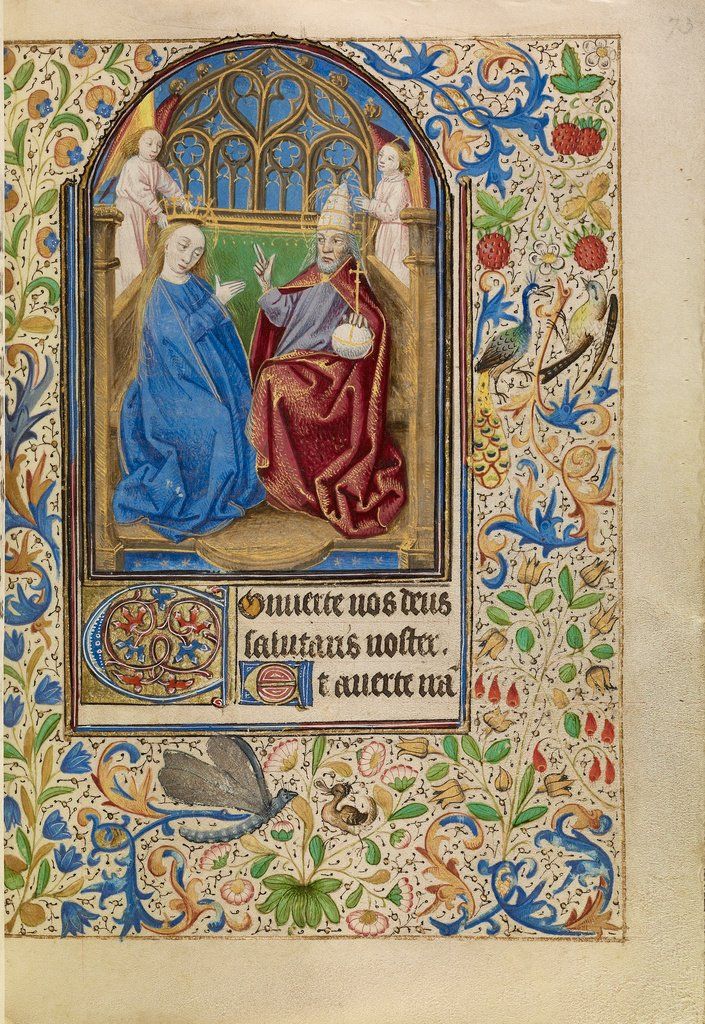 73
Conuerte nos deus
salutaris noster.
Et auerte irā